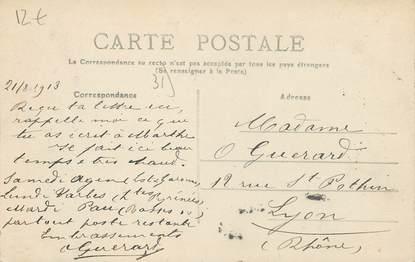 12€
CARTE POSTALE
La Correspondance au recto n'est pas acceptée par tous les pays étrangers
(Se renseigner à la Poste)
31)
Correspondance
Adresse
21/8 1913
Reçu ta lettre ici,
rappelle moi ce que
tu as écrit à Marthe
Il fait ici beau
temps et très chaud.
Samedi Agen (Lot et Garonne)
Lundi Tarbes (Htes Pyrénées)
Mardi Pau (Basses
partout poste restante
Embrassements
O Guerard
Madame
O Guerard
12 rue St Pothin
Lyon
(Rhône)